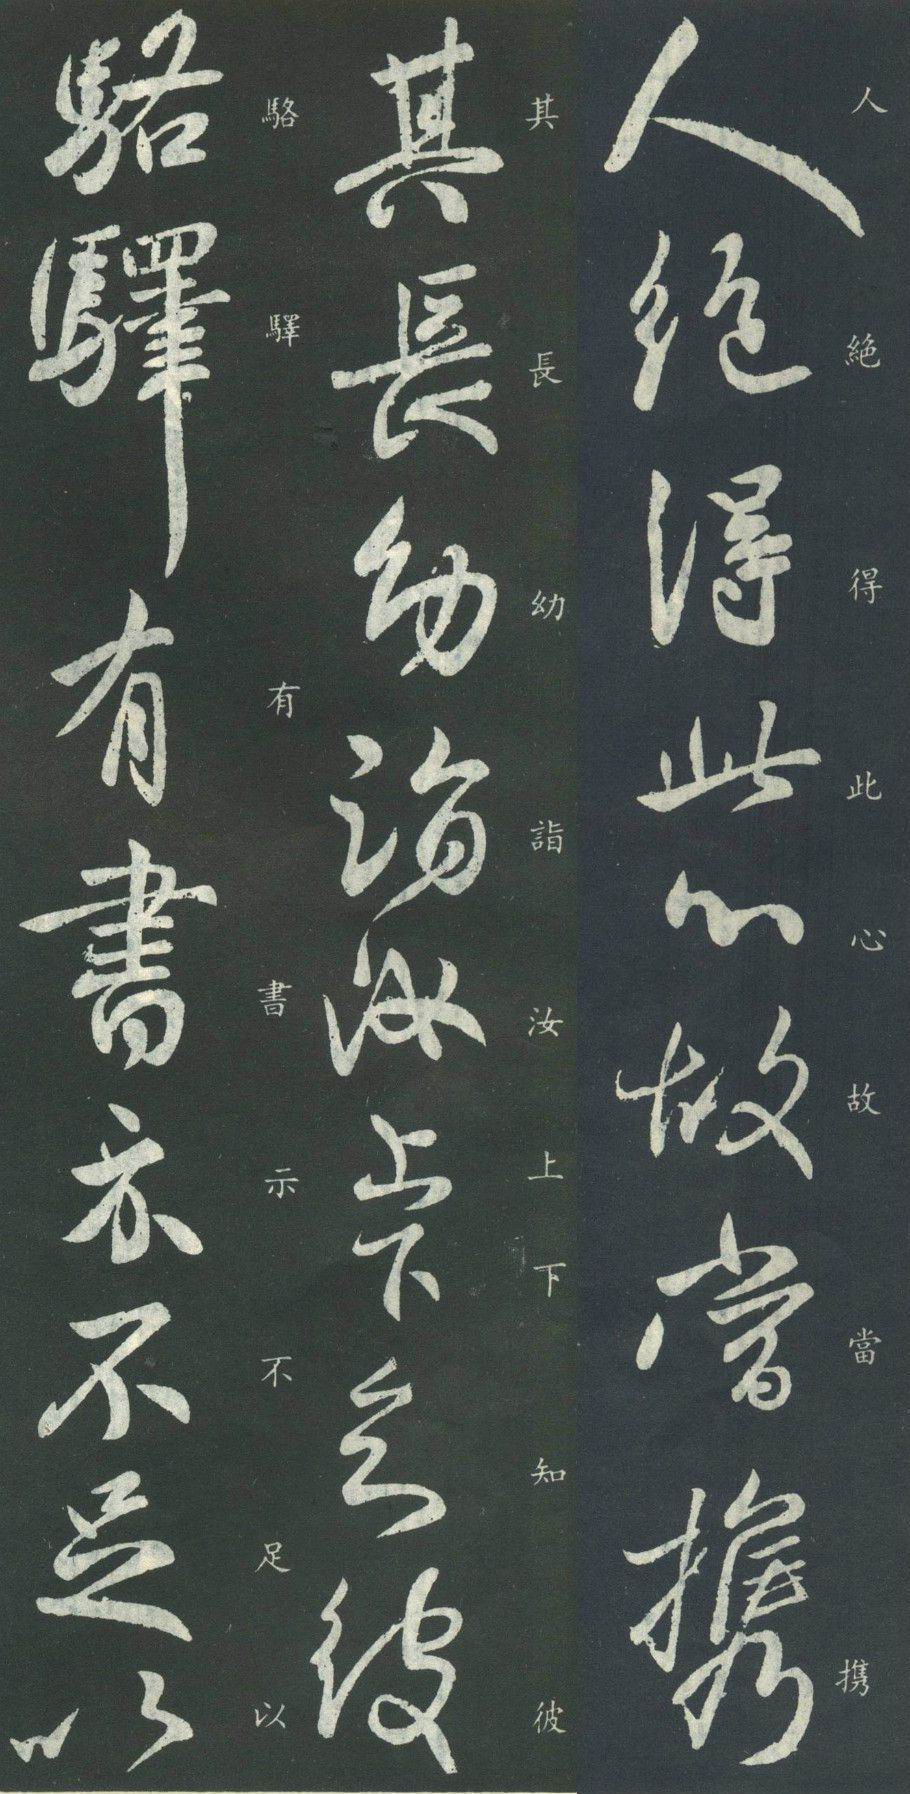 人絶得此心故當携
人絶得此心故當携
其長幼詣汝上下知彼
其長幼詣汝上下知彼
駱驛有書示不足以
駱驛有書示不足以